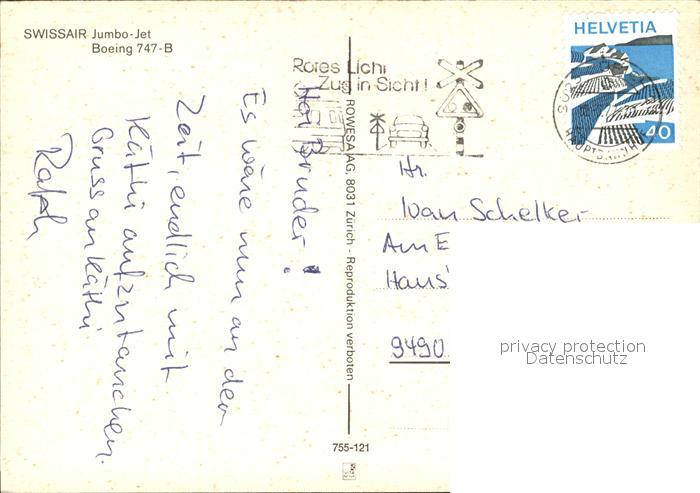 SWISSAIR Jumbo-Jet
Boeing 747-B
HELVETIA
40
Rotes Licht
Zug in Sicht!
HAUPTBAHNH
ROWESA AG, 8031 Zürich - Reproduktion verboten
Hoi Bruder!
Es wäre nun an der
Zeit, endlich mit
Käthi aufzutauchen.
Gruss an Käthi
Ralph
Hr.
Ivan Schelker
Am E
Haus
9490
privacy protection
Datenschutz
755-121